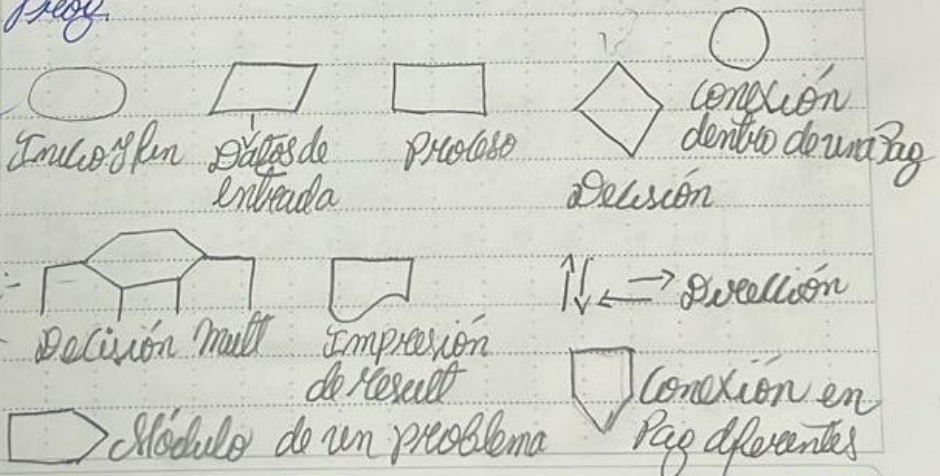 Prog.
Inicio y fin
Datos de
entrada
Proceso
Decisión
Conexión
dentro de una Pag
Decisión Mult
Impresión
de result
Dirección
Conexión en
Pag diferentes
Módulo de un problema